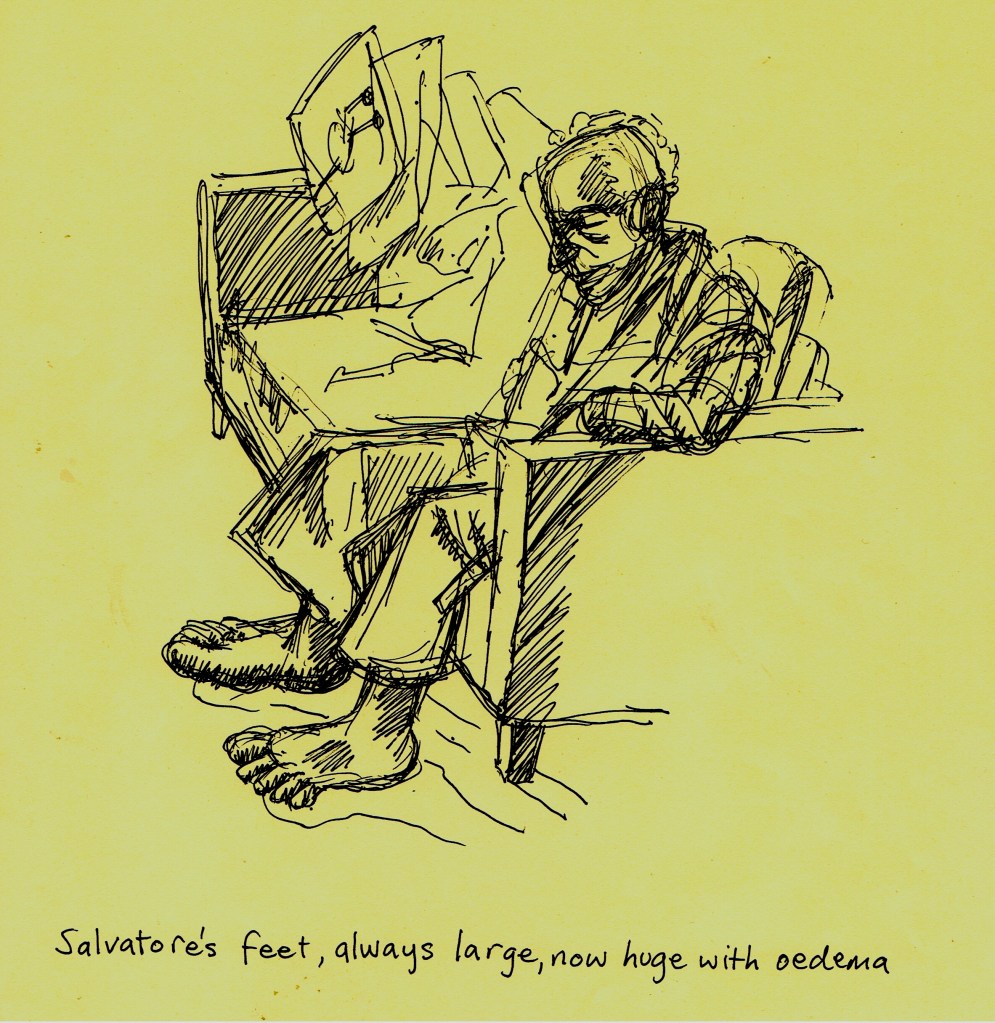 Salvatore's feet, always large, now huge with oedema